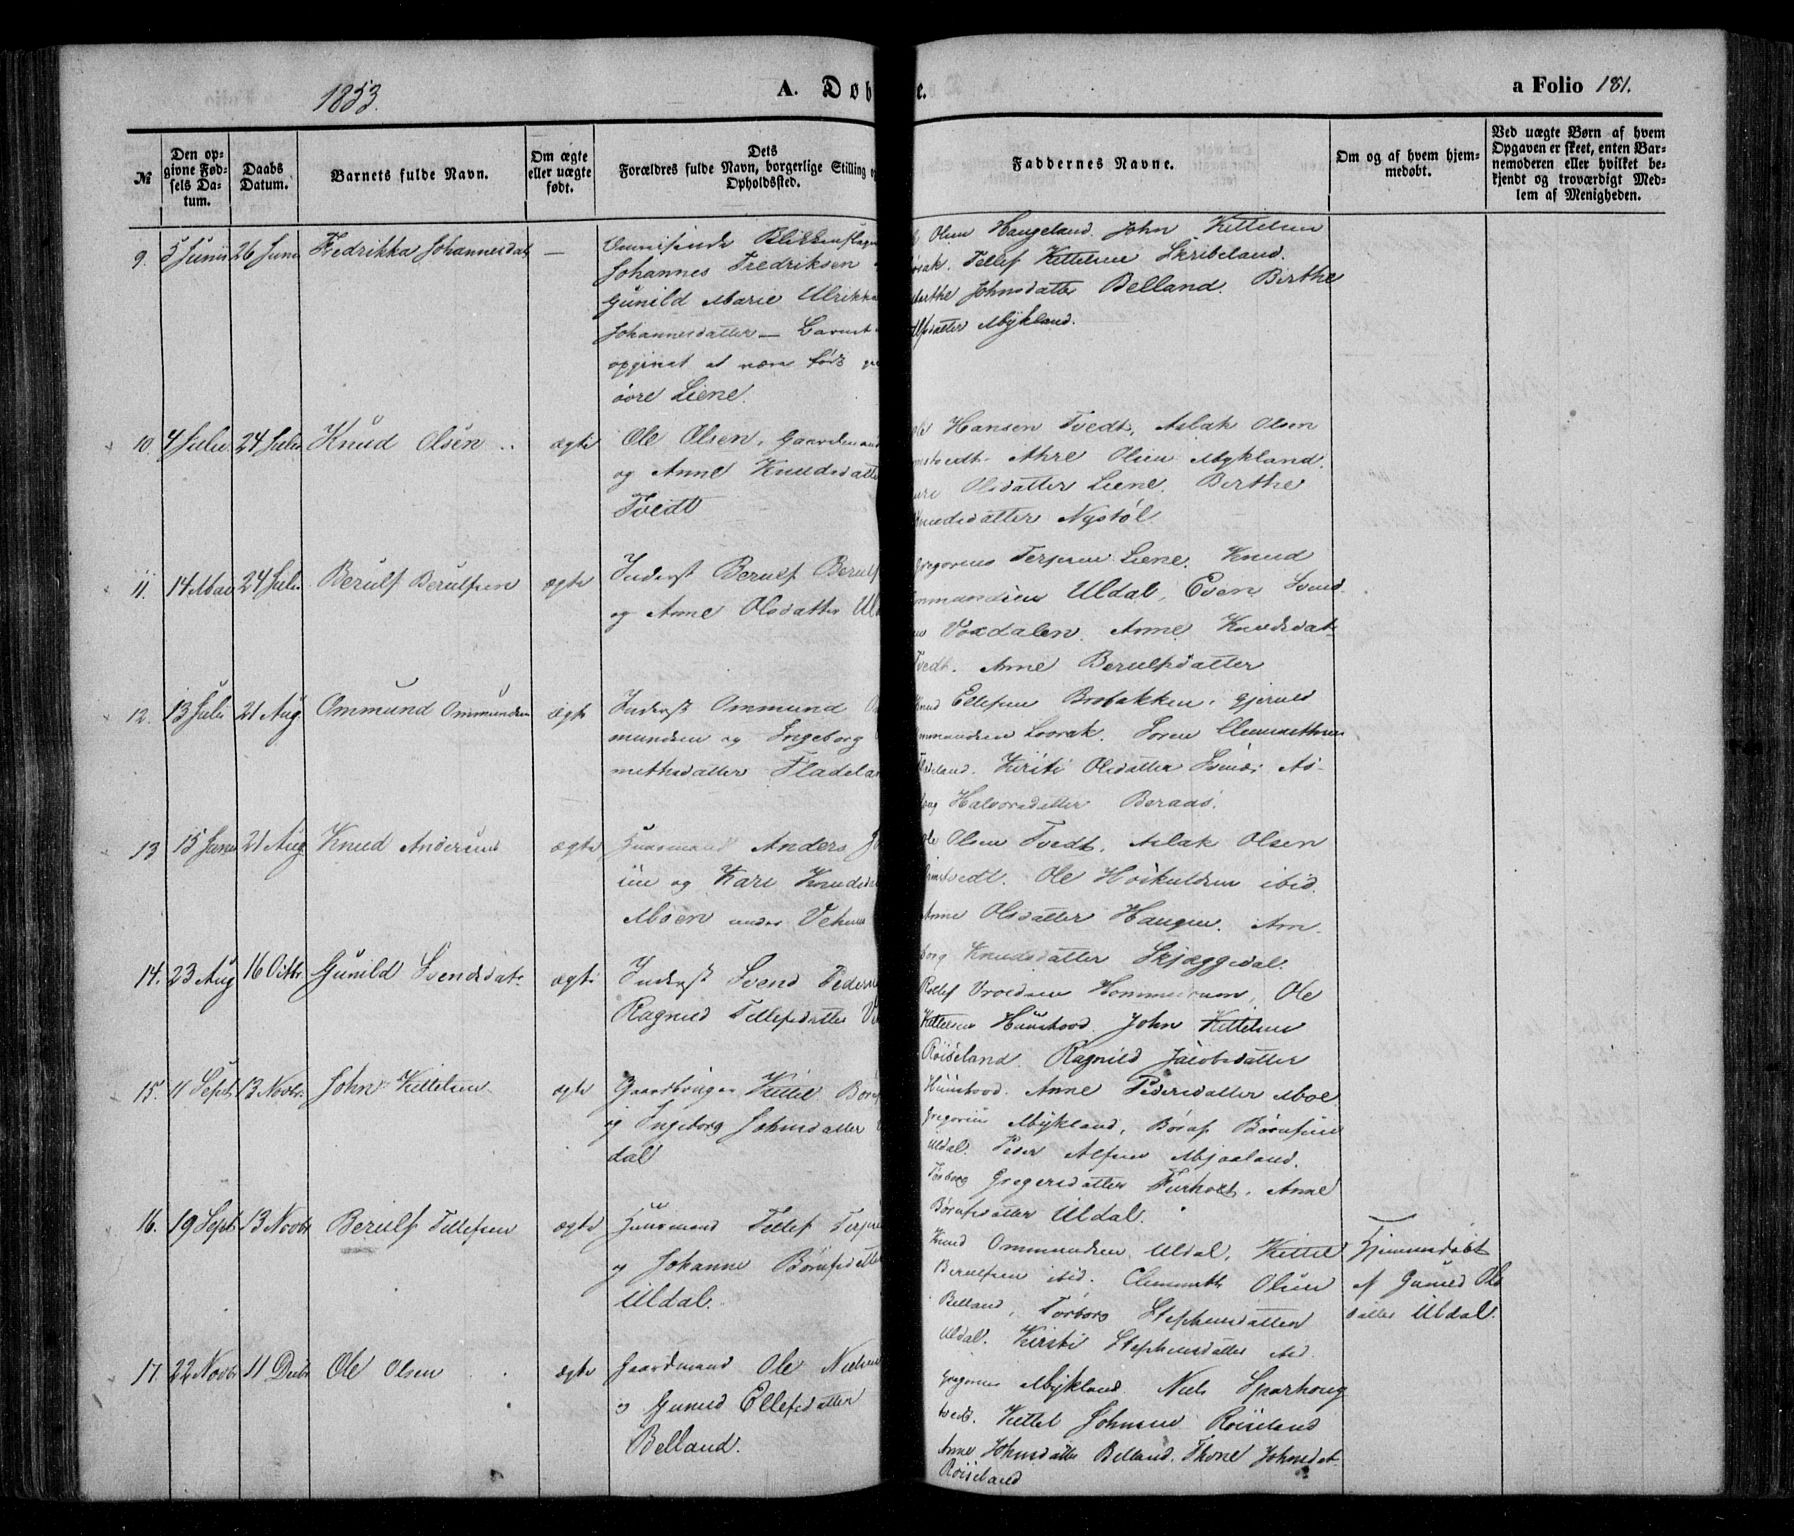 1853.
A. Døb
e.
a Folio 181.
№
Den op-
givne Fød-
sels Da-
tum.
Daabs
Datum.
Barnets fulde Navn.
Om ægte
eller uægte
født.
Dets
Forældres fulde Navn, borgerlige Stilling o
Opholdssted.
Faddernes Navne.
Om og af hvem hjem-
medøbt.
Ved uægte Børn af hvem
Opgaven er skeet, enten Bar-
nemoderen eller hvilket be-
kjendt og troværdigt Med-
lem af Menigheden.
9. 5 Junii 26 Juni Fredrikka Johannesdat —
Omreisende Blikkenslager
Johannes Fredriksen
Gunild Marie Ulrikka
Johannesdatter — Barnet
opgivet at være født
øvre Liene.
Olsen Haugeland. John Kittelsen
Tellef Kittelsen Skribeland.
Marthe Johnsdatter Belland. Birthe
Alfsdatter Mykland.
10. 4 Julii 24 Julii Knud Olsen ægte
Ole Olsen, Gaardmand
og Anne Knudsdatter
Tvedt
Ole Hansen Tvedt, Aslak Olsen
Ahre Olsen Mykland.
Olsdatter Liene. Berthe
Knudsdatter Nystøl
11. 14 Mai 24 Julii Berulf Berulfsen ægte
Inderst Berulf Berulf
og Anne Olsdatter Ul
Gregorius Terjesen Liene. Knud
Ommundsen Uldal, Even Svend
Voxdalen. Anne Knudsdat
Tvedt. Anne Berulfsdatter
12. 13 Julii 21 Aug Ommund Ommundsen ægte
Inderst Ommund O
mundsen og Ingeborg
methsdatter Fladela
Knud Ellefsen Brobakken. Gjeruld
Ommundsen Lovrak. Søren Clemmethsen
Fladeland. Kirsti Olsdatter As-
borg Halvorsdatter Beraas.
13 15 Juni 21 Aug Knud Andersen ægte
Huusmand Anders
og Kari Knudsd
Moen under Vehus
Ole Olsen Tvedt. Aslak Olsen
Ole Høskuldsen ibid.
Anne Olsdatter Haugen. Am-
borg Knudsdatter Skjæggedal.
14. 23 Aug 16 Octbr. Gunild Svendsdat. ægte
Inderst Svend Pedersen
Ragnild Tellefsdatter
Rollef Vroldsen Hommelrum, Ole
Kittelsen Huustvod. John Kittelsen
Røiseland. Ragnild Jacobsdatter
Huustvod. Anne Pedersdatter Moe.
15. 11 Septb 13 Novbr. John Kittelsen ægte
Gaardbruger Kittel Børuf
og Ingeborg Johnsdatter
dal
Gregorius Mykland, Børuf Børufsen
Uldal. Peder Alfsen Mjaaland.
Torborg Gregersdatter Furholt. Anne
Børufsdatter Uldal.
16. 19 Septb 13 Novbr Berulf Tellefsen ægte
Huusmand Tellef Terjes
og Johanne Børufsdatter
Uldal.
Knud Ommundsen Uldal, Kittel
Berulfsen ibid. Clemmeth Olsen
Belland, Torborg Stephensdatter
Uldal. Kirsti Stephensdatter ibid.
Hjemmedøbt
af Gunild Ols
datter Uldal.
17. 22 Novbr 11 Decbr Ole Olsen ægte
Gaardmand Ole Nielsen
og Gunild Ellefsdatter
Belland.
Gregorius Mykland. Niels Sparhong
tvedt. Kittel Johnsen Røiseland
Anne Johnsdatter Belland. Thone Johnsdat.
Røiseland